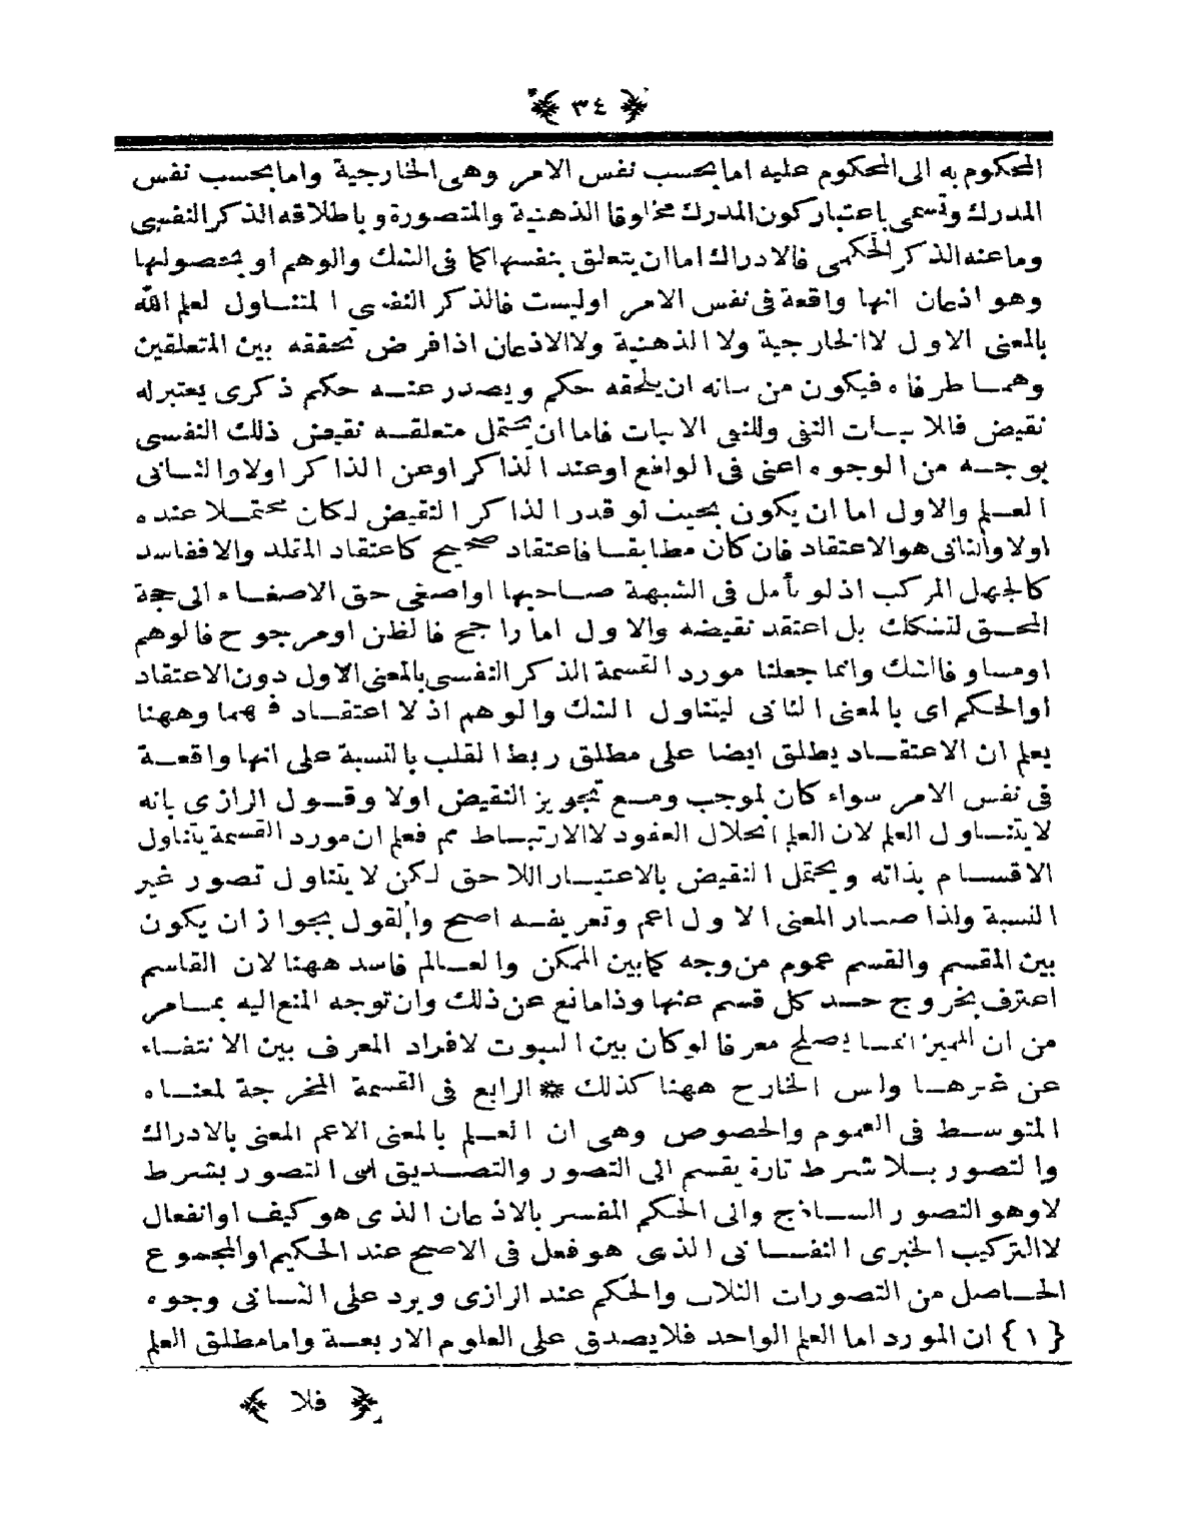 ﴿ ٣٤ ﴾
المحكوم به الى المحكوم عليه اما بحسب نفس الامر وهى الخارجية واما بحسب نفس
المدرك وتسمى باعتبار كون المدرك مخلوقا الذهنية والمتصورة وباطلاقه الذكر النفسى
وما عنه الذكر الحكمى فالادراك اما ان يتعلق بنفسها كما فى الشك والوهم او بحصولها
وهو اذعان انها واقعة فى نفس الامر اوليست فالذكر النفسى المتناول لعلم الله
بالمعنى الاول لا الخارجية ولا الذهنية ولا الاذعان اذا فرض تحققه بين المتعلقين
وهما طرفاه فيكون من شانه ان يلحقه حكم ويصدر عنه حكم ذكرى يعتبر له
نقيض فللاثبات النفى وللنفى الاثبات فاما ان يحتمل متعلقه نقيض ذلك النفسى
بوجه من الوجوه اعنى فى الواقع او عند الذاكر اوعن الذاكر اولا والثانى
العلم والاول اما ان يكون بحيث لو قدر الذاكر النقيض لكان محتملا عنده
اولا والثانى هو الاعتقاد فان كان مطابقا فاعتقاد صحيح كاعتقاد المقلد والا ففاسد
كالجهل المركب اذ لو تأمل فى الشبهة صاحبها او اصغى حق الاصغاء الى حجة
المحق لتشكك بل اعتقد نقيضه والاول اما راجح فالظن او مرجوح فالوهم
او مساو فالشك وانما جعلنا مورد القسمة الذكر النفسى بالمعنى الاول دون الاعتقاد
او الحكم اى بالمعنى الثانى ليتناول الشك والوهم اذ لا اعتقاد فيهما وههنا
يعلم ان الاعتقاد يطلق ايضا على مطلق ربط القلب بالنسبة على انها واقعة
فى نفس الامر سواء كان لموجب ومع تجويز النقيض اولا وقول الرازى بانه
لا يتناول العلم لان العلم انحلال العقود لا الارتباط مم فعلم ان مورد القسمة يتناول
الاقسام بذاته ويحتمل النقيض بالاعتبار اللاحق لكن لا يتناول تصور غير
النسبة ولذا صار المعنى الاول اعم وتعريفه اصح والقول بجواز ان يكون
بين المقسم والقسم عموم من وجه كما بين الممكن والعالم فاسد ههنا لان القاسم
اعترف بخروج حد كل قسم عنها وذا مانع عن ذلك وان توجه المنع اليه بما مر
من ان المميز انما يصلح معرفا لو كان بين الثبوت لافراد المعرف بين الانتفاء
عن غيرها وليس الخارج ههنا كذلك * الرابع فى القسمة المخرجة لمعناه
المتوسط فى العموم والخصوص وهى ان العلم بالمعنى الاعم المعنى بالادراك
والتصور بلا شرط تارة يقسم الى التصور والتصديق اى التصور بشرط
لا وهو التصور الساذج والى الحكم المفسر بالاذعان الذى هو كيف او انفعال
لا التركيب الخبرى النفسانى الذى هو فعل فى الاصح عند الحكيم او المجموع
الحاصل من التصورات الثلاث والحكم عند الرازى ويرد على الثانى وجوه
{ ١ } ان المورد اما العلم الواحد فلا يصدق على العلوم الاربعة واما مطلق العلم
﴿ فلا ﴾